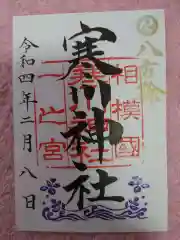 八方除
寒川神社
相模國
一之宮
令和四年二月八日